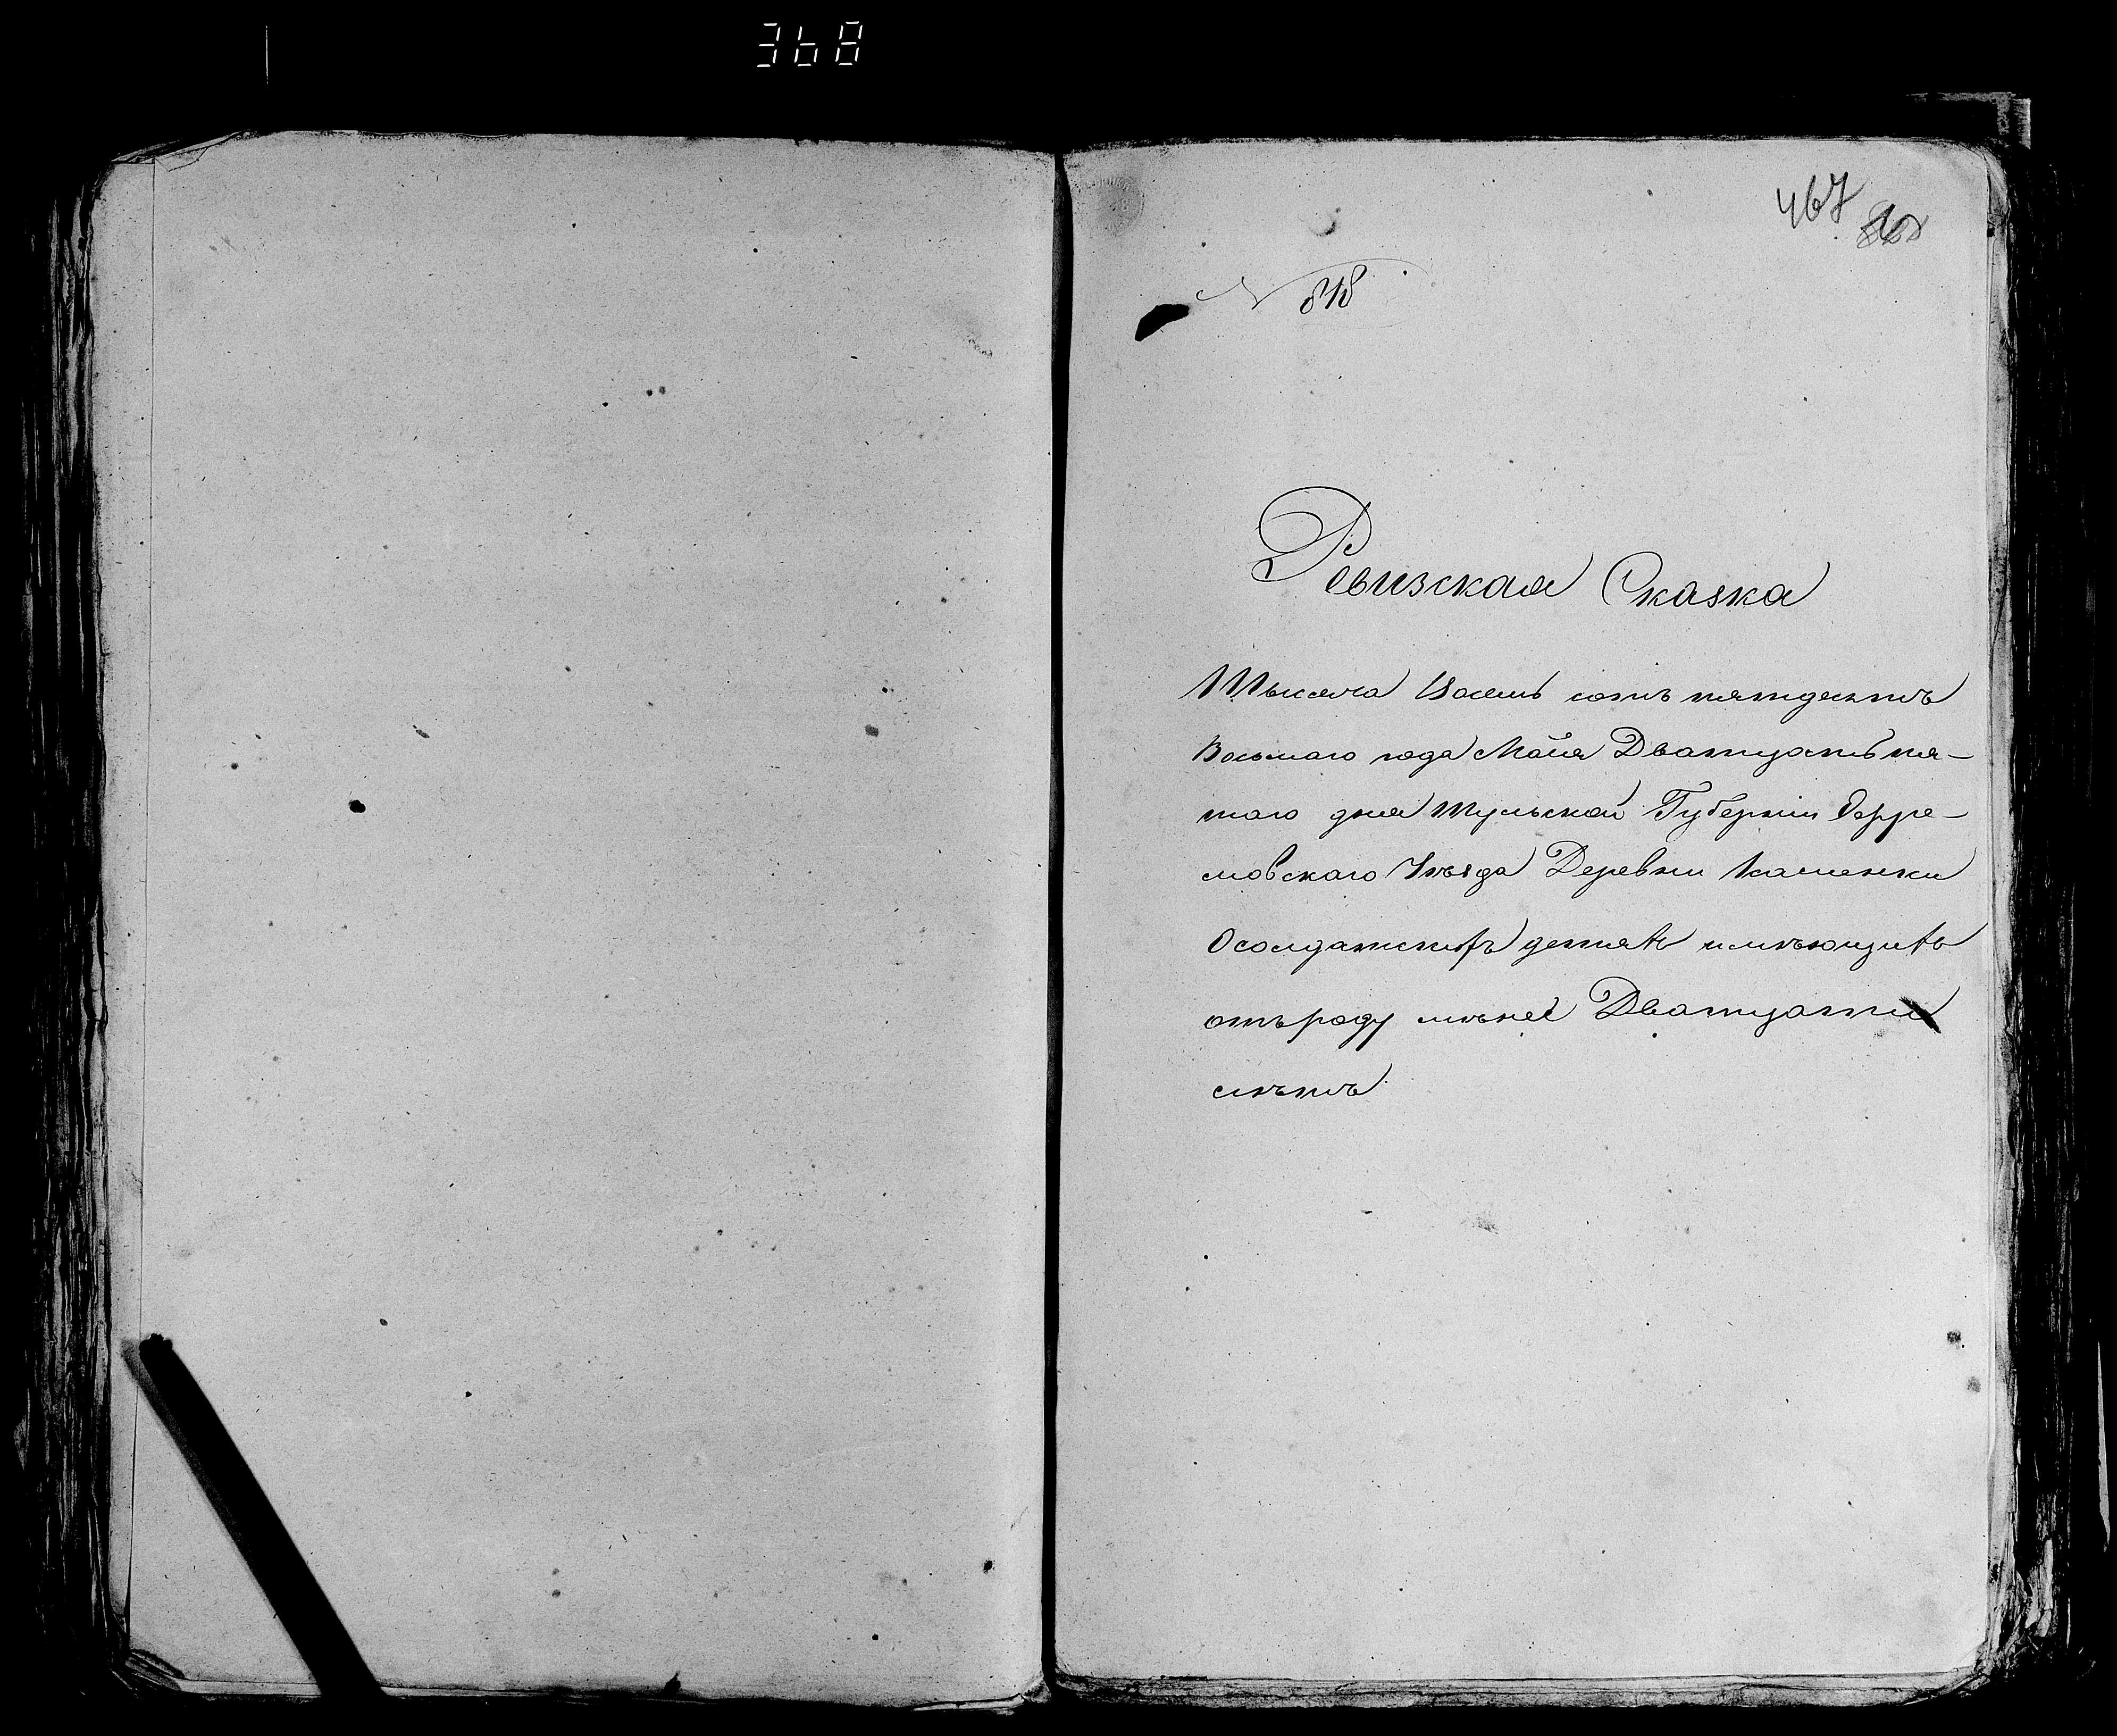 368
467
N 818
Ревизская Сказка
Тысяча Восемь сотъ пятидесятъ
Восьмаго года Майя Дватцать пя-
таго дня Тульской Губерніи Ефре-
мовскаго Уѣзда Деревни Каменки
Осолдатскихъ детяхъ имѣющихъ
отъроду мѣнее Дватцати
лѣтъ